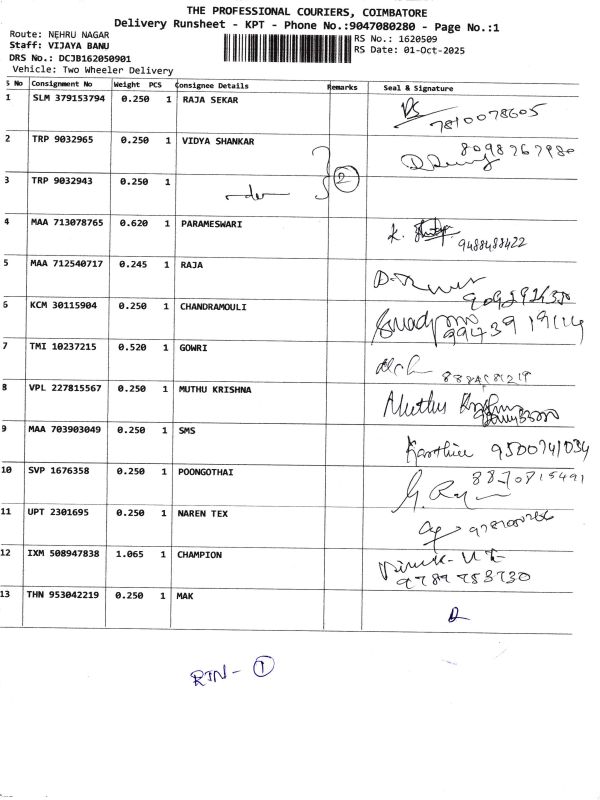 THE PROFESSIONAL COURIERS, COIMBATORE
Delivery Runsheet - KPT - Phone No.:9047080280 - Page No.:1
Route: NEHRU NAGAR
Staff: VIJAYA BANU
DRS No.: DCJB162050901
Vehicle: Two Wheeler Delivery
RS No.: 1620509
RS Date: 01-Oct-2025
S No Consignment No Weight PCS Consignee Details Remarks Seal & Signature
1 SLM 379153794 0.250 1 RAJA SEKAR
7810078605
2 TRP 9032965 0.250 1 VIDYA SHANKAR
8098767980
3 TRP 9032943 0.250 1
2
4 MAA 713078765 0.620 1 PARAMESWARI
K. 9488488422
5 MAA 712540717 0.245 1 RAJA
6 KCM 30115904 0.250 1 CHANDRAMOULI
7 TMI 10237215 0.520 1 GOWRI
8 VPL 227815567 0.250 1 MUTHU KRISHNA
Muthu
9 MAA 703903049 0.250 1 SMS
Karthice 9500741034
10 SVP 1676358 0.250 1 POONGOTHAI
8870815491
11 UPT 2301695 0.250 1 NAREN TEX
12 IXM 508947838 1.065 1 CHAMPION
9787753730
13 THN 953042219 0.250 1 MAK
RTN - 1